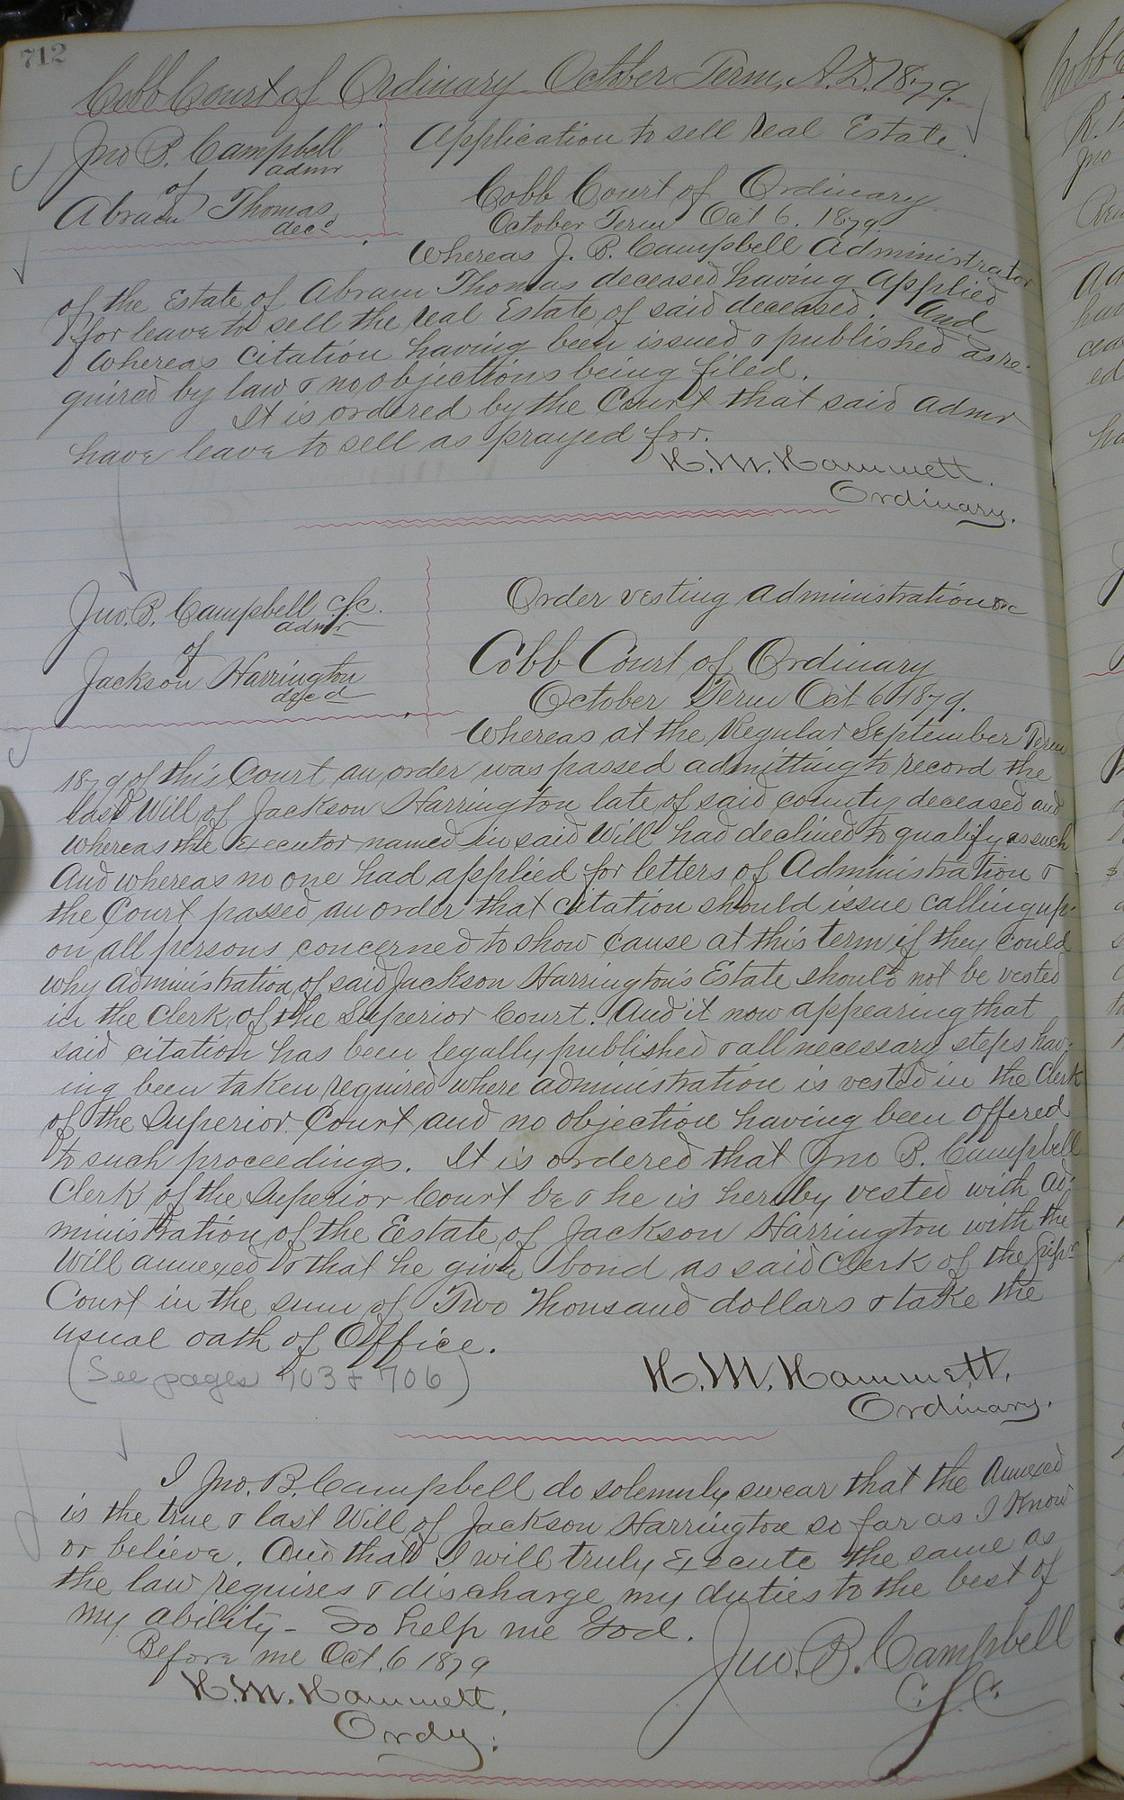 712
Cobb Court of Ordinary October Term, A.D. 1879.
Jno B. Campbell
admr
of
Abram Thomas
decd
Application to sell real Estate.
Cobb Court of Ordinary
October Term Oct 6. 1879
Whereas J. B. Campbell Administrator
of the Estate of Abram Thomas deceased having applied
for leave to sell the real Estate of said deceased. And
Whereas citation having been issued & published as re-
quired by law & no objections being filed.
It is ordered by the Court that said admr
have leave to sell as prayed for.
H. M. Hammett.
Ordinary.
Jno. B. Campbell c/c.
admr
of
Jackson Harrington
decd
Order vesting administration &c
Cobb Court of Ordinary
October Term Oct 6 1879.
Whereas at the Regular September Term
1879 of this Court an order was passed admitting to record the
last Will of Jackson Harrington late of said county deceased and
whereas the Executor named in said Will had declined to qualify as such
And whereas no one had applied for letters of Administration &
the Court passed an order that citation should issue calling up-
on all persons concerned to show cause at this term if they could
why administration of said Jackson Harrington's Estate should not be vested
in the Clerk of the Superior Court. And it now appearing that
said citation has been legally published & all necessary steps hav-
ing been taken required where administration is vested in the Clerk
of the Superior Court and no objection having been offered
to such proceedings. It is ordered that Jno B. Campbell
Clerk of the Superior Court be & he is hereby vested with ad-
ministration of the Eestate of Jackson Harrington with the
Will annexed & that he give bond as said Clerk of the Supr
Court in the sum of Two Thousand dollars & take the
usual oath of Office.
(See pages 703 & 706)
H. M. Hammett,
Ordinary.
I Jno. B. Campbell do solemnly swear that the annexed
is the true & last Will of Jackson Harrington so far as I know
or believe. And that I will truly Execute the same as
the law requires & discharge my duties to the best of
my ability - So help me God.
Before me Oct. 6 1879
H. M. Hammett,
Ordy.
Jno. B. Campbell
C.S.C.